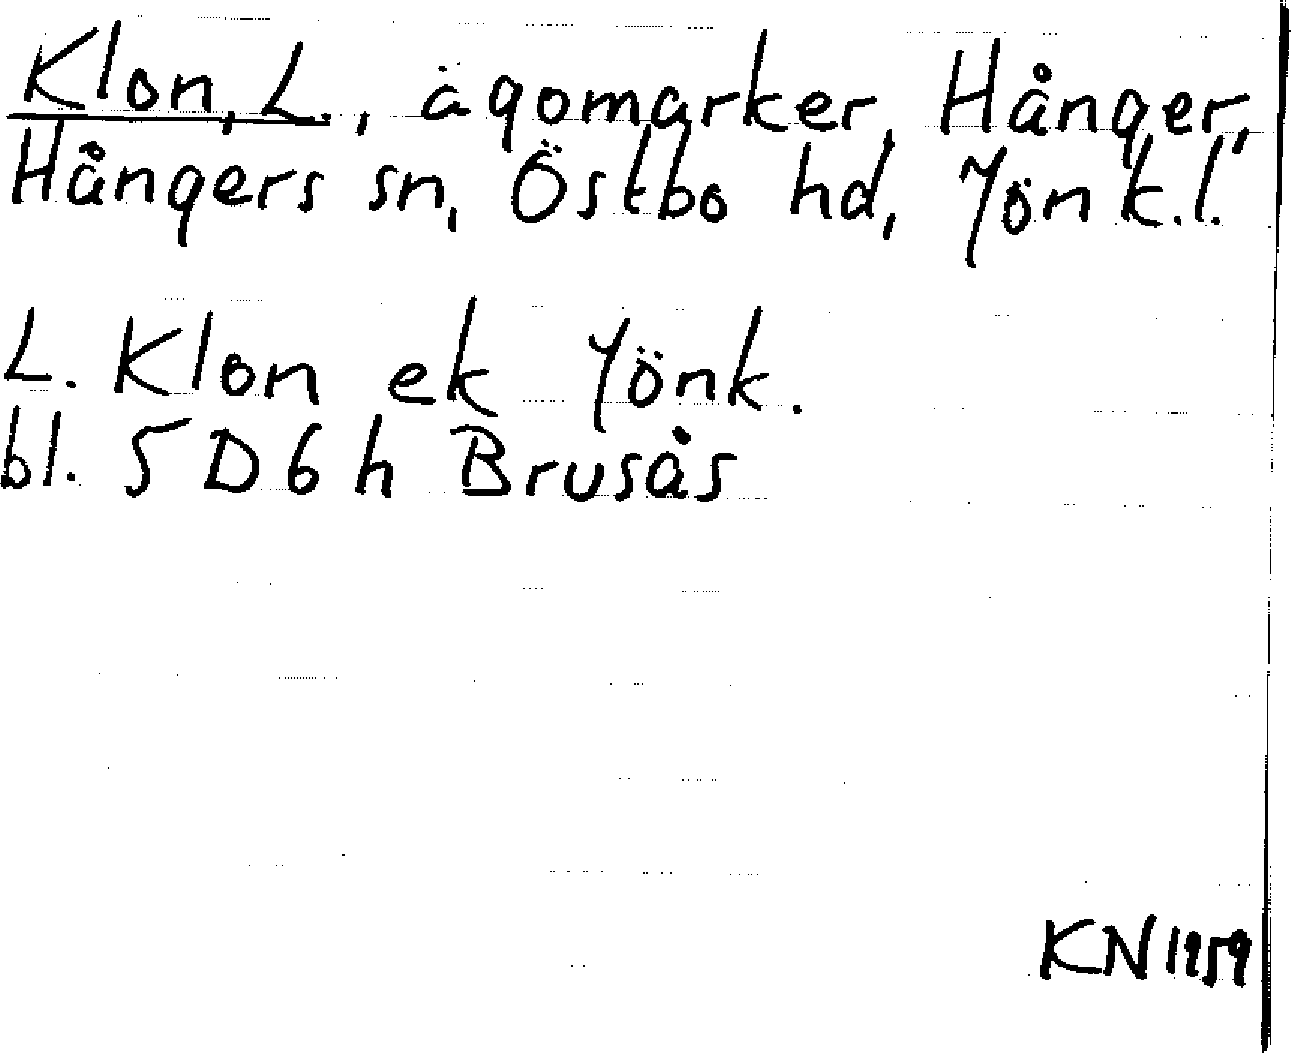 Klon, L., ägomarker, Hånger,
Hångers sn, Östbo hd, Jönk.l.
L. Klon ek Jönk.
bl. 5D6h Brusås
KN1959